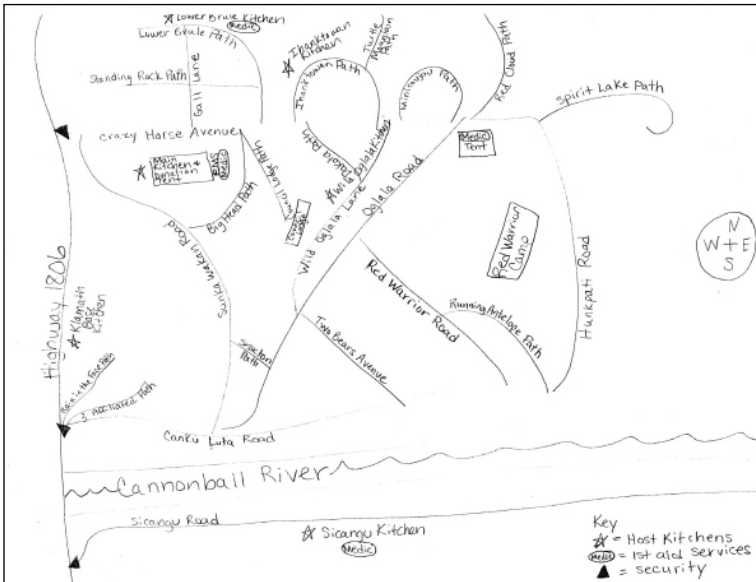 Lower Brule Kitchen
Medic
Lower Brule Path
Standing Rock Path
Gall Lane
Ihanktowan
Kitchen
Ihanktowan Path
Turtle
Mountain
Path
Minicoujou Path
Red Cloud Path
Spirit Lake Path
Crazy Horse Avenue
Main
Kitchen &
Donation
Tent
Medic
Big Head Path
Council Lodge Path
Council Lodge
Dakota Path
Wild Oglala Kitchen
Wild Oglala Lane
Oglala Road
Medic
Tent
Red Warrior
Camp
N
W + E
S
Highway 1806
Sunka Wakan Road
Red Warrior Road
Running Antelope Path
Hunkpati Road
Klamath
Base
Kitchen
Rain in the Face Path
3 Affiliated Path
Two Bears Avenue
Canku Luta Road
Cannonball River
Sicangu Road
Sicangu Kitchen
Medic
Key
= Host Kitchens
Medic = 1st aid services
= security